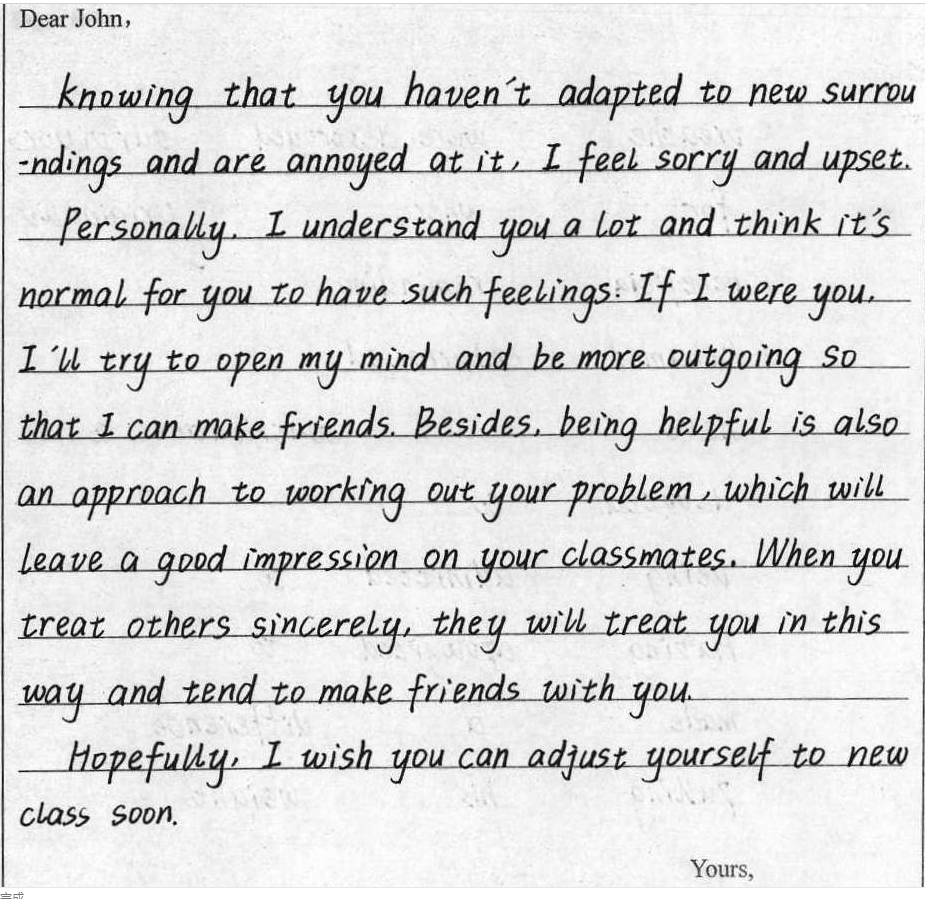 Dear John,
knowing that you haven't adapted to new surrou
-ndings and are annoyed at it, I feel sorry and upset.
Personally, I understand you a lot and think it's
normal for you to have such feelings. If I were you,
I'll try to open my mind and be more outgoing so
that I can make friends. Besides, being helpful is also
an approach to working out your problem, which will
leave a good impression on your classmates. When you
treat others sincerely, they will treat you in this
way and tend to make friends with you.
Hopefully, I wish you can adjust yourself to new
class soon.
Yours,
完成